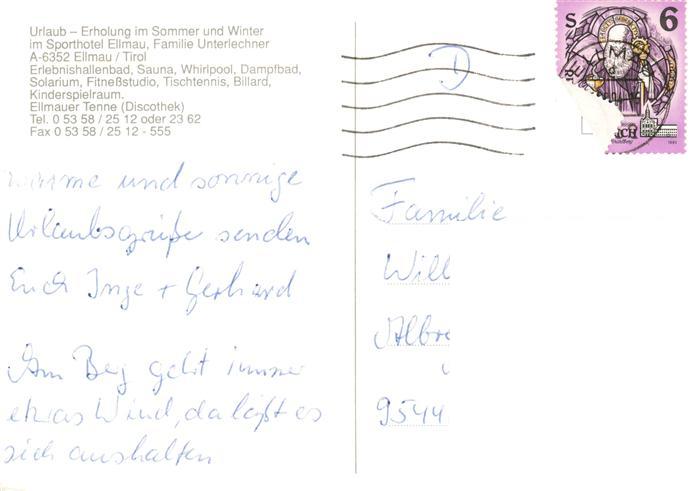 Urlaub – Erholung im Sommer und Winter
im Sporthotel Ellmau, Familie Unterlechner
A-6352 Ellmau / Tirol
Erlebnishallenbad, Sauna, Whirlpool, Dampfbad,
Solarium, Fitneßstudio, Tischtennis, Billard,
Kinderspielraum.
Ellmauer Tenne (Discothek)
Tel. 0 53 58 / 25 12 oder 23 62
Fax 0 53 58 / 25 12 - 555
warme und sonnige
Urlaubsgrüße senden
Euch Inge + Gerhard
Am Berg geht immer
etwas Wind, da läßt es
sich aushalten
D
S 6
Familie
Will
Albre
9544